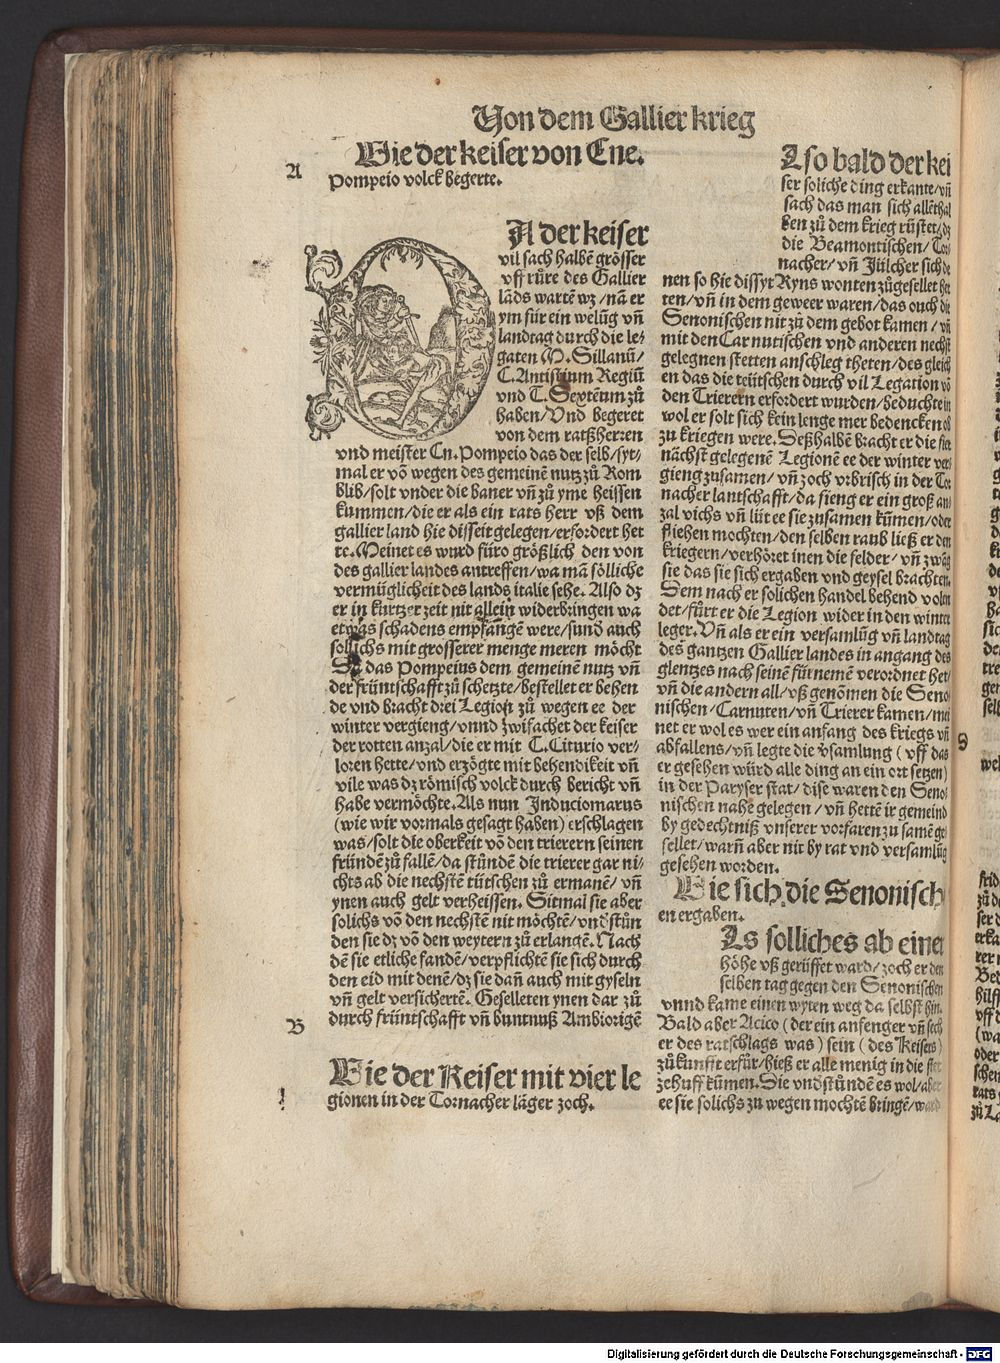 Von dem Gallier krieg
A
Wie der keiser von Ene.
Pompeio volck begerte.
DA der keiser
vil sach halbē grösser
vff růre des Gallier
lāds wartē wz/nā er
ym für ein welūg vñ
landtag durch die le-
gaten M. Sillanū/
C. Antistium Regiū
vnd T. Sextēum zů
haben/Vnd begeret
von dem ratßherren
vnd meister Cn. Pompeio das der selb/syt-
mal er vō wegen des gemeinē nutz zů Rom
blib/solt vnder die baner vñ zů yme heissen
kummen/die er als ein rats herr vß dem
gallier land hie disseit gelegen/erfordert het
te. Meinet es wurd füro größlich den von
des gallier landes antreffen/wa mā sölliche
vermüglicheit des lands italie sehe. Also dz
er in kurtzer zeit nit allein widerbringen wa
etwas schadens empfangē were/sund auch
sollichs mit grosserer menge meren möcht
das Pompeius dem gemeinē nutz vñ
der früntschafft zů schetzte/bestellet er behen
de vnd bracht drei Legion zů wegen ee der
winter vergieng/vnnd zwifachet der keiser
der rotten anzal/die er mit T. Citurio ver-
loren hette/vnd erzögte mit behendikeit vñ
vile was dz römisch volck durch bericht vñ
habe vermöchte. Als nun Induciomarus
(wie wir vormals gesagt haben) erschlagen
was/solt die oberkeit vō den trierern seinen
fründē zů fallē/da stůndē die trierer gar ni-
chts ab die nechstē tütschen zů ermanē/vñ
ynen auch gelt verheissen. Sitmal sie aber
solichs vō den nechstē nit möchtē/vnd stůn
den sie dz vō den weytern zů erlangē. Nach
dē sie etliche fandē/verpflichtē sie sich durch
den eid mit denē/dz sie dañ auch mit gyseln
vñ gelt versichertē. Geselleten ynen dar zů
durch früntschafft vñ buntnuß Ambiorigē
B
Wie der Keiser mit vier le
gionen in der Tornacher läger zoch.
Also bald der kei
ser soliche ding erkante/vñ
sach das man sich allēthal
ben zů dem krieg rüstet/dz
die Beamontischen/Tor
nacher/vñ Jülcher sich
nen so hie dissyt Ryns wonten zůgesellet
ten/vñ in dem geweer waren/das ouch die
Senonischen nit zů dem gebot kamen/vñ
mit den Carnutischen vnd anderen nechst
gelegnen stetten anschleg theten/des gleich
en das die teütschen durch vil Legation vō
den Trierern erfordert wurden/beduchte in
wol er solt sich kein lenge mer bedencken ob
zu kriegen were. Deßhalbē bracht er die fier
nächst gelegenē Legionē ee der winter ver
gieng zusamen/vñ zoch vrbrisch in der Tor
nacher lantschafft/da fieng er ein groß an
zal vichs vñ lüt ee sie zusamen kūmen/oder
fliehen mochten/den selben raub ließ er den
kriegern/verhöret inen die felder/vñ zwāg
sie das sie sich ergaben vnd geysel brachten.
Dem nach er solichen handel behend volen
det/fürt er die Legion wider in den winter
leger. Vñ als er ein versamlūg vñ landtag
des gantzen Gallier landes in angang des
glentzes nach seinē fürnemē verordnet het/
vñ die andern all/vß genōmen die Seno
nischen/Carnuten/vñ Trierer kamen/mei
net er wol es wer ein anfang des kriegs vñ
abfallens/vñ legte die vsamlung (vff das
er gesehen würd alle ding an ein ort setzen)
in der Paryser stat/dise waren den Seno
nischen nahe gelegen/vñ hettē ir gemeind
by gedechtniß vnserer vorfaren zu samē ge
sellet/warñ aber nit by rat vnd versamlūg
gesehen worden.
Wie sich die Senonisch
en ergaben.
Als solliches ab einer
höhe vß gerüffet ward/zoch er den
selben tag gegen den Senonischen
vnnd kame einen wyten weg da selbst hin.
Bald aber Acico (der ein anfenger vñ sech
er des ratschlags was) sein (des Keisers)
zůkunfft erfůr/hieß er alle menig in die stet
zehuff kūmen. Sie vnd stůndē es wol/aber
ee sie solichs zu wegen mochtē bringē/ward
Digitalisierung gefördert durch die Deutsche Forschungsgemeinschaft - DFG